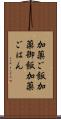 加薬ご飯加
薬御飯加薬
ごはん